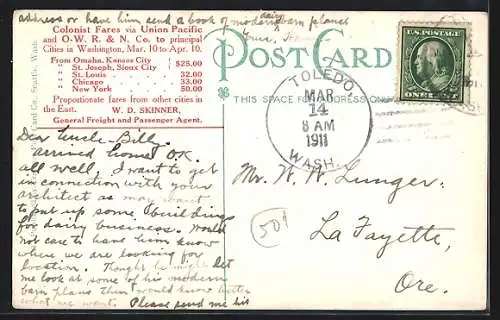 address or have him send a book of modern dairy barn planes
Yours,
Colonist Fares via Union Pacific
and O.-W. R. & N. Co. to principal
Cities in Washington, Mar. 10 to Apr. 10.
From Omaha, Kansas City
" St. Joseph, Sioux City } $25.00
" St. Louis 32.00
" Chicago 33.00
" New York 50.00
Proportionate fares from other cities in
the East.
W. D. SKINNER,
General Freight and Passenger Agent.
Card Co. Seattle, Wash.
POST CARD
THIS SPACE FOR ADDRESS ONLY
U.S. POSTAGE
ONE CENT
TOLEDO,
MAR
14
8 AM
1911
WASH.
Dear Uncle Bill,
arrived home O.K.
all well, I want to get
in connection with your
architect as may want
to put up some buildings
for dairy business. Would
not care to have him know
where we are looking for
location. Thought he might let
me look at some of his modern
barn plans then would know better
what we want. Please send me his
Mr. W. W. Lunger.
501
La Fayette,
Ore.